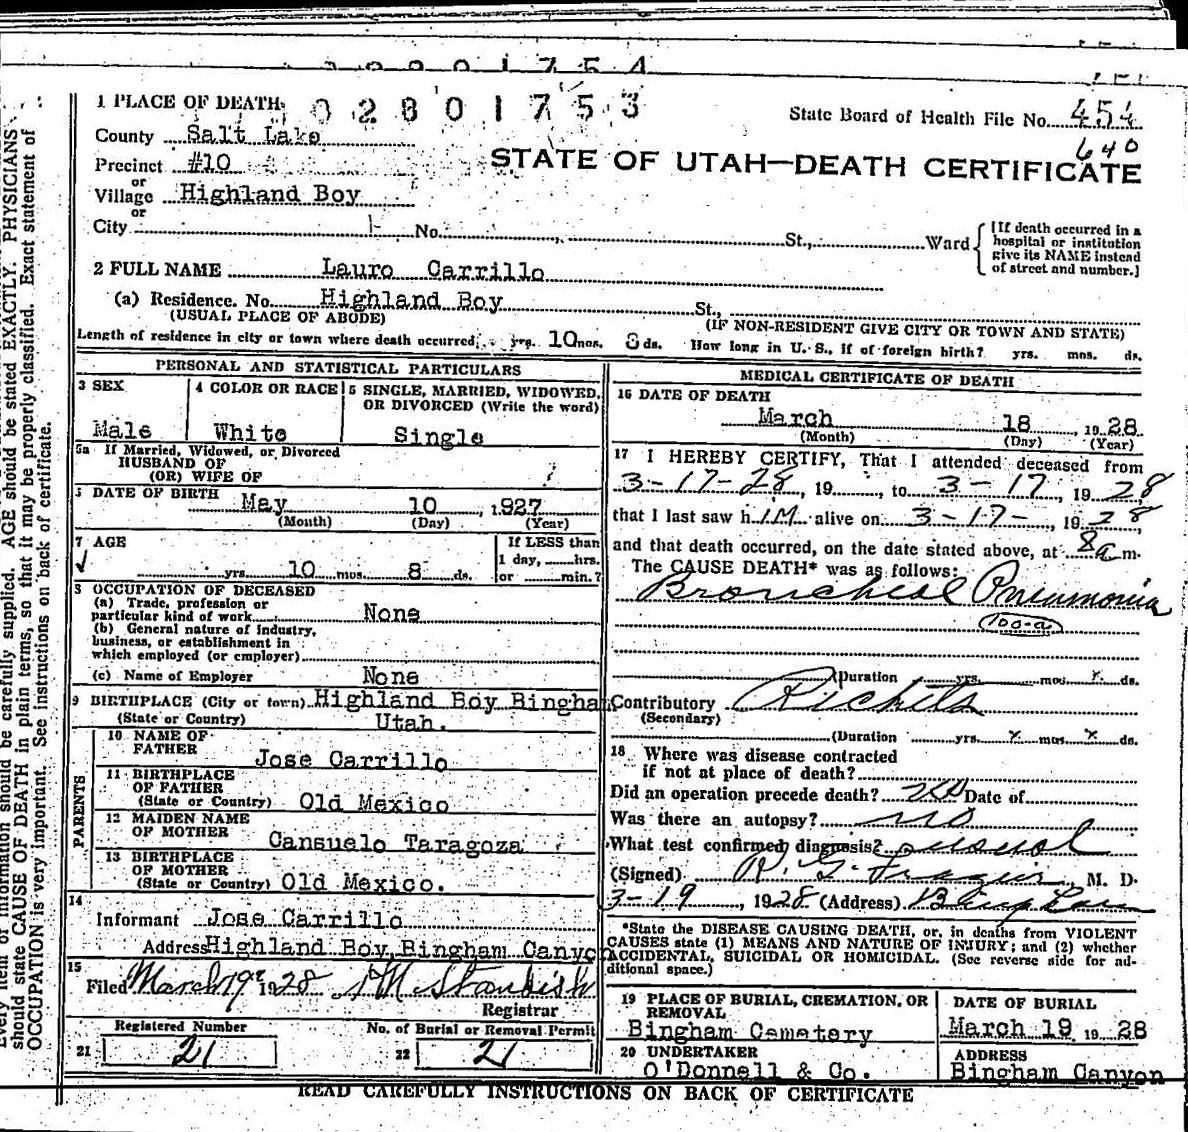 1 PLACE OF DEATH
02801753
State Board of Health File No. 454
640
County Salt Lake
Precinct #10
STATE OF UTAH—DEATH CERTIFICATE
or
Village Highland Boy
or
City No. St., Ward
[If death occurred in a hospital or institution give its NAME instead of street and number.]
2 FULL NAME Lauro Carrillo
(a) Residence. No. Highland Boy St.,
(USUAL PLACE OF ABODE) (IF NON-RESIDENT GIVE CITY OR TOWN AND STATE)
Length of residence in city or town where death occurred yrs. 10 mos. 8 ds. How long in U. S., if of foreign birth? yrs. mos. ds.
PERSONAL AND STATISTICAL PARTICULARS
3 SEX
Male
4 COLOR OR RACE
White
5 SINGLE, MARRIED, WIDOWED, OR DIVORCED (Write the word)
Single
5a If Married, Widowed, or Divorced
HUSBAND OF
(OR) WIFE OF
DATE OF BIRTH
May 10, 1927
(Month) (Day) (Year)
7 AGE
yrs. 10 mos. 8 ds.
If LESS than
1 day, hrs.
or min.?
8 OCCUPATION OF DECEASED
(a) Trade, profession or
particular kind of work None
(b) General nature of industry,
business, or establishment in
which employed (or employer)
(c) Name of Employer None
9 BIRTHPLACE (City or town) Highland Boy Bingham
(State or Country) Utah.
PARENTS
10 NAME OF
FATHER
Jose Carrillo
11 BIRTHPLACE
OF FATHER
(State or Country) Old Mexico
12 MAIDEN NAME
OF MOTHER
Cansuelo Taragoza
13 BIRTHPLACE
OF MOTHER
(State or Country) Old Mexico.
14
Informant Jose Carrillo
Address Highland Boy, Bingham Canyon
15
Filed March 19 1928 Standish
Registrar
Registered Number
21 21
No. of Burial or Removal Permit
22 21
MEDICAL CERTIFICATE OF DEATH
16 DATE OF DEATH
March 18, 1928
(Month) (Day) (Year)
17 I HEREBY CERTIFY, That I attended deceased from
3-17-28, 19 , to 3-17, 1928
that I last saw him alive on 3-17-, 1928,
and that death occurred, on the date stated above, at 8a m.
The CAUSE DEATH* was as follows:
Broncheal Pneumonia
100-a
(Duration yrs. mos ds.
Contributory Rickets
(Secondary)
(Duration yrs. mos ds.
18 Where was disease contracted
if not at place of death?
Did an operation precede death? no Date of
Was there an autopsy? no
What test confirmed diagnosis? usual
(Signed) R. G. Frazier, M. D.
3-19, 1928 (Address) Bingham
*State the DISEASE CAUSING DEATH, or, in deaths from VIOLENT
CAUSES state (1) MEANS AND NATURE OF INJURY; and (2) whether
ACCIDENTAL, SUICIDAL OR HOMICIDAL. (See reverse side for ad-
ditional space.)
19 PLACE OF BURIAL, CREMATION, OR
REMOVAL
Bingham Cemetery
DATE OF BURIAL
March 19 1928
20 UNDERTAKER
O'Donnell & Co.
ADDRESS
Bingham Canyon
READ CAREFULLY INSTRUCTIONS ON BACK OF CERTIFICATE
Every item of information should be carefully supplied. AGE should be stated EXACTLY. PHYSICIANS
should state CAUSE OF DEATH in plain terms, so that it may be properly classified. Exact statement of
OCCUPATION is very important. See instructions on back of certificate.